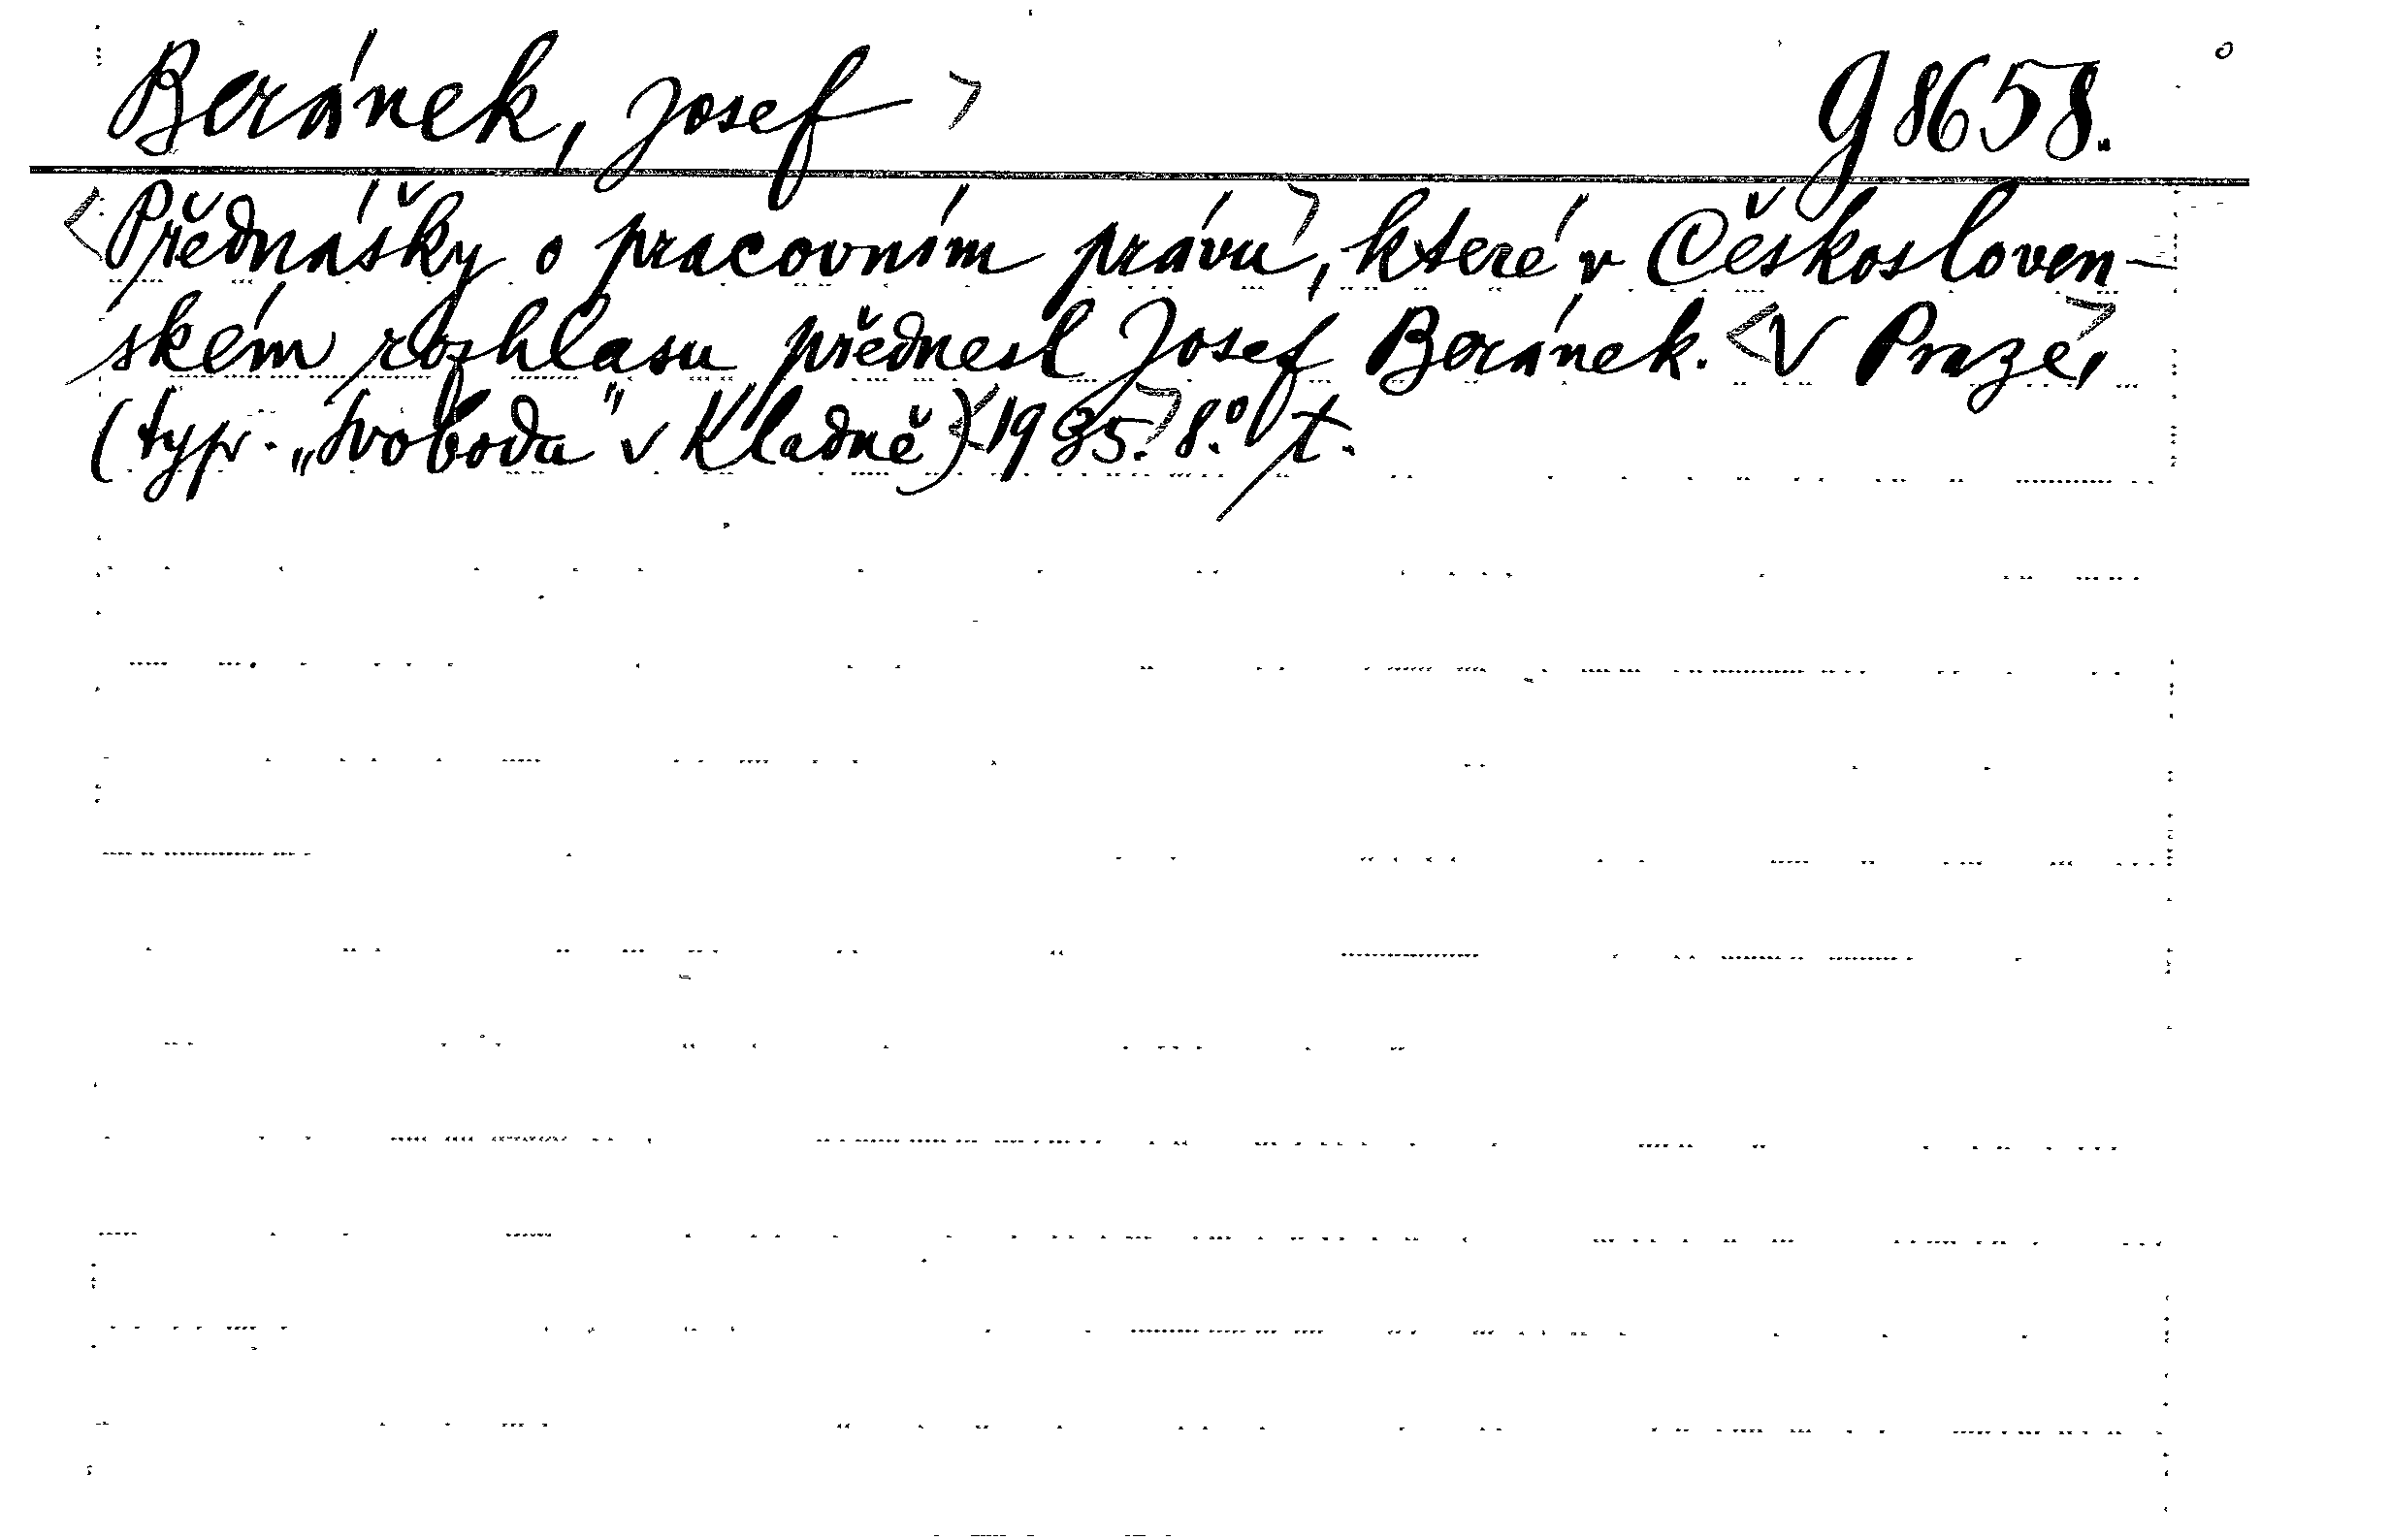 Beránek, Josef > g 8658.
<Přednášky o pracovním právu>, které v Českosloven-
ském rozhlasu přednesl Josef Beránek. <V Praze>,
(typ. „Svoboda" v Kladně) <1935.> 8.° t.